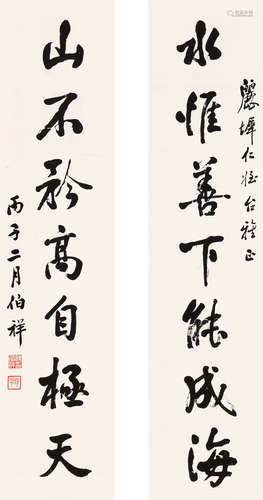 麗墀仁姪台雅正
水惟善下能成海
山不矜高自極天
丙子二月伯祥